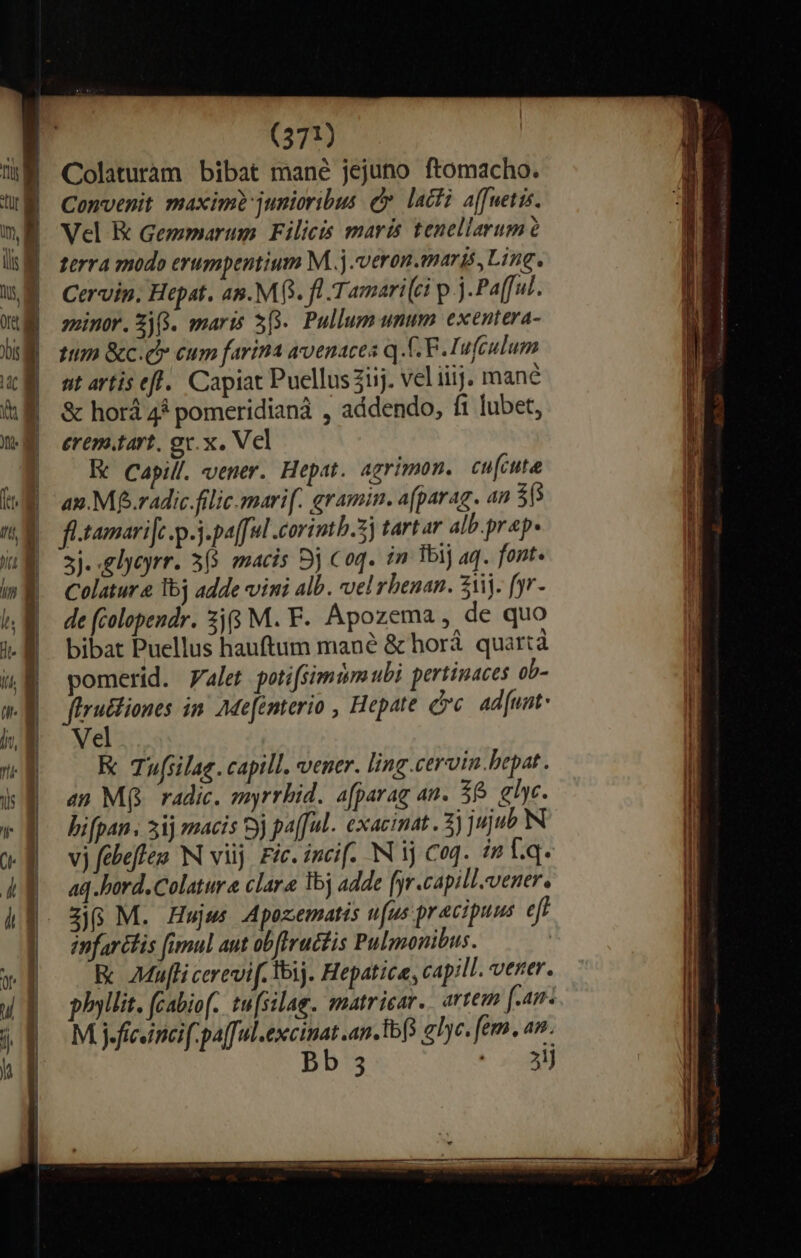 (371)
Colaturam bibat manè jejuno ſtomacho.
Convenit maximè junioribus & lacti aſſuetis.
Vel ℞ Gemmarum Filicis maris tenellarum è
terra modo erumpentium M.j.veron.maris, Ling.
Cervin. Hepat. an.Mß. fl.Tamariſci p j.Paſſul.
minor. ℥jß. maris ℥ß. Pullum unum exentera-
tum &c.& cum farina avenacea q.ſ.F.Iuſculum
ut artis eſt. Capiat Puellus ℥iij. vel iiij. manè
& horâ 4ª pomeridianâ , addendo, ſi lubet,
crem.tart. gr.x. Vel
℞ Capill. vener. Hepat. agrimon. cuſcutæ
an.Mß.radic.filic.mariſ. gramin. aſparag. an ℥ß
fl.tamariſc.p.j.paſſul.corinth.℥j tartar alb.præp.
ʒj. glycyrr. ʒß macis ℈j Coq. in ℔ij aq. font.
Colaturæ ℔j adde vini alb. vel rhenan. ℥iij. ſyr-
de ſcolopendr. ℥jß M. F. Apozema , de quo
bibat Puellus hauſtum manè & horâ quartâ
pomerid. Valet potiſsimùm ubi pertinaces ob-
ſtructiones in Meſenterio , Hepate &c adſunt·
Vel
℞ Tuſsilag. capill. vener. ling.cervin.hepat.
an Mß radic. myrrhid. aſparag an. ℥ß glyc.
hiſpan. ʒij macis ℈j paſſul. exacinat. ℥j jujub N
vj ſebeſten N viij Fic. inciſ. N ij Coq. in ſ.q.
aq.hord.Colaturæ claræ ℔j adde ſyr.capill.vener.
℥jß M. Hujus Apozematis uſus præcipuus eſt
infarctis ſimul aut obſtructis Pulmonibus.
℞ Muſti cereviſ. ℔ij. Hepaticæ, capill. vener.
phyllit. ſcabioſ. tuſsilag. matricar. artem ſ.an.
M j.fic.inciſ.paſſul.excinat.an.℔ß glyc. ſem. an.
Bb 3 ʒij